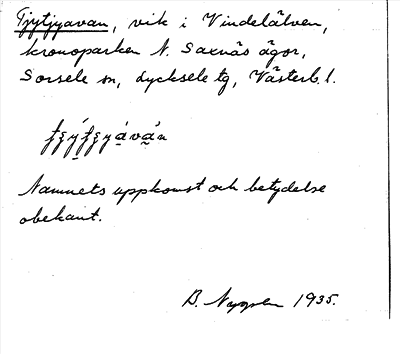 Tjytjyavan, vik i Vindelälven,
kronoparken N. Saxnäs ägor,
Sorsele sn, Lycksele tg, Västerb. l.
Namnets uppkomst och betydelse
obekant.
B. 1935.